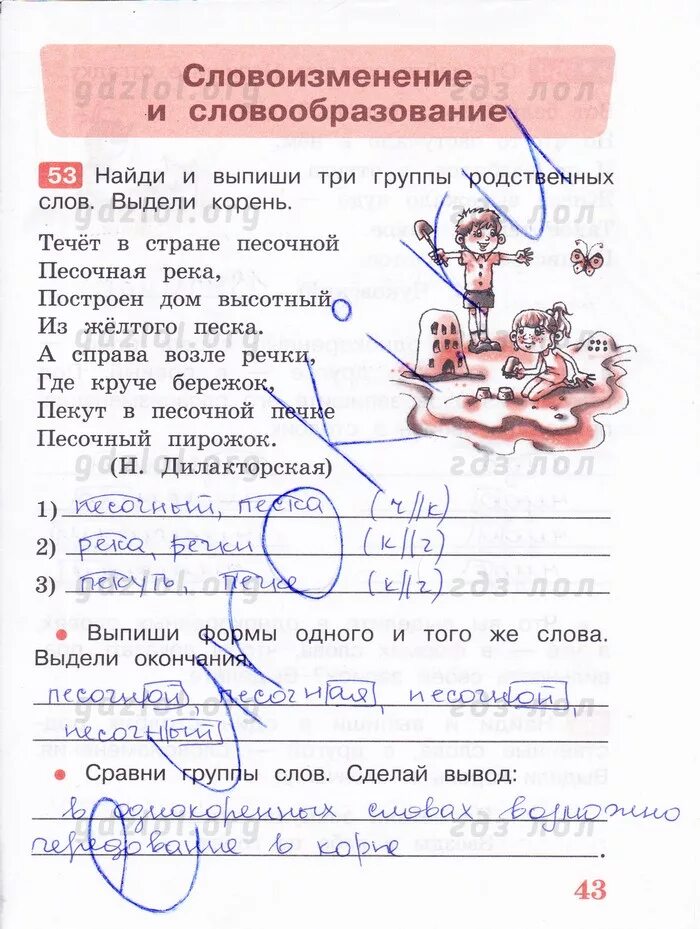 Словоизменение
и словообразование
53 Найди и выпиши три группы родственных
слов. Выдели корень.
Течёт в стране песочной
Песочная река,
Построен дом высотный
Из жёлтого песка.
А справа возле речки,
Где круче бережок,
Пекут в песочной печке
Песочный пирожок.
(Н. Дилакторская)
1) песочный, песка (ч//к)
2) река, речки (к//ч)
3) пекуть, печке (к//ч)
• Выпиши формы одного и того же слова.
Выдели окончания.
песочной, песочная, песочной,
песочный
• Сравни группы слов. Сделай вывод:
в однокоренных словах возможно
чередование в корне.
43
gdzlol.org
гдз лол